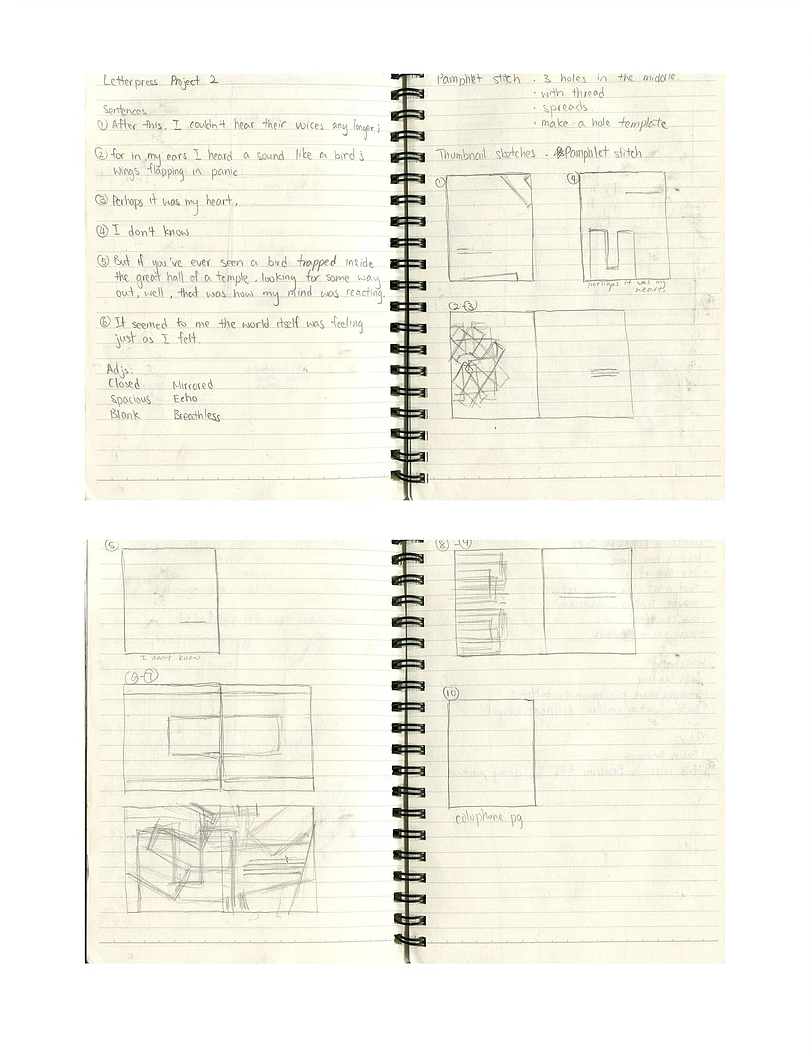 Letterpress Project 2
Sentences
① After this, I couldn't hear their voices any longer;
② for in my ears I heard a sound like a bird's
wings flapping in panic
③ Perhaps it was my heart,
④ I don't know
⑤ But if you've ever seen a bird trapped inside
the great hall of a temple, looking for some way
out, well, that was how my mind was reacting.
⑥ It seemed to me the world itself was feeling
just as I felt.
Adjs:
Closed Mirrored
Spacious Echo
Blank Breathless
Pamphlet stitch . 3 holes in the middle
. with thread
. spreads
. make a hole template
Thumbnail sketches - Pamphlet stitch
① ④
perhaps it was my
heart,
②+③
⑤
I don't know
⑥-⑦
⑧-⑨
⑩
coluphone pg